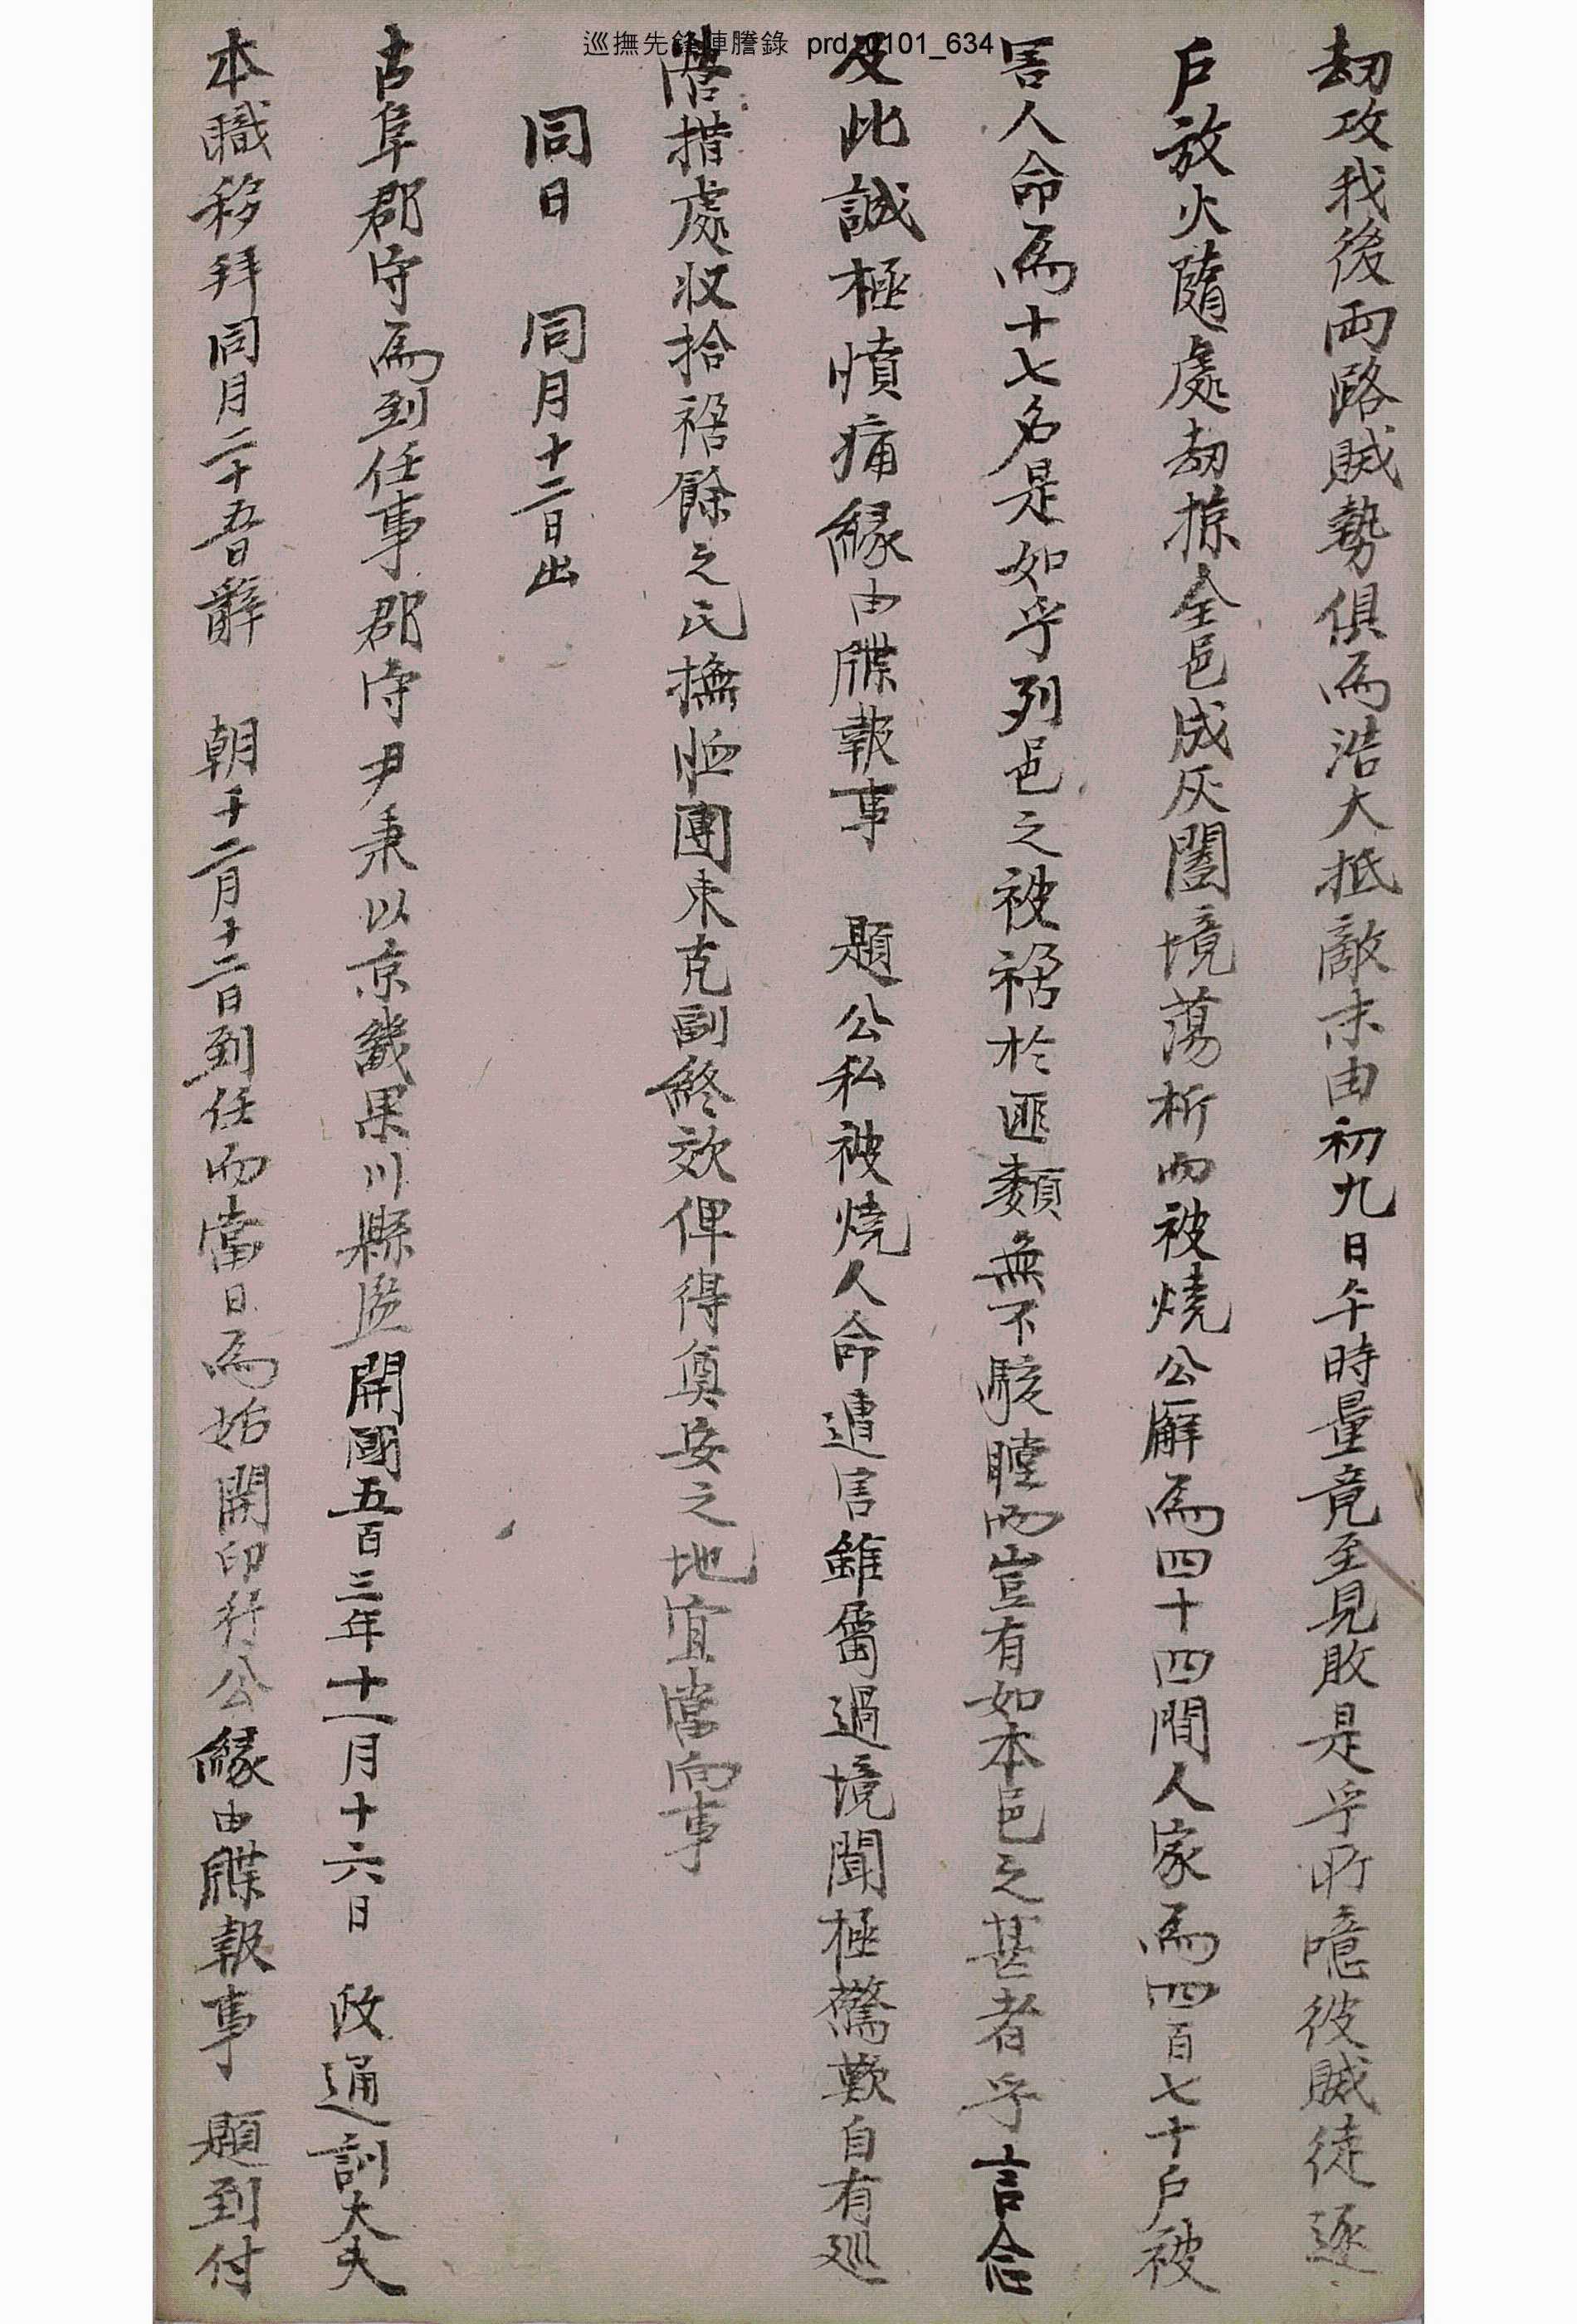 巡撫先鋒陣謄錄 prd_0101_634
劫攻我後両路賊勢俱爲浩大抵敵末由初九日午時量竟至見敗是乎所噫彼賊徒逐
戶放火隨處劫掠全邑成灰闔境蕩析而被燒公廨爲四十四間人家爲四百七十戶被
害人命爲十七名是如乎列邑之被禍於匪類無不駭瞠而豈有如本邑之甚者乎言念
及此誠極憤痛緣由牒報事 題公私被燒人命遭害雖屬過境聞極驚歎自有巡
營措處収拾禍餘之民撫恤團束克副終效俾得奠安之地宜當向事
同日 同月十二日出
古阜郡守爲到任事郡守尹秉以京畿果川縣監開國五百三年十一月十六日 政通訓大夫
本職移拜同月二十五日辭 朝十二月十二日到任而當日爲始開印行公緣由牒報事 題到付